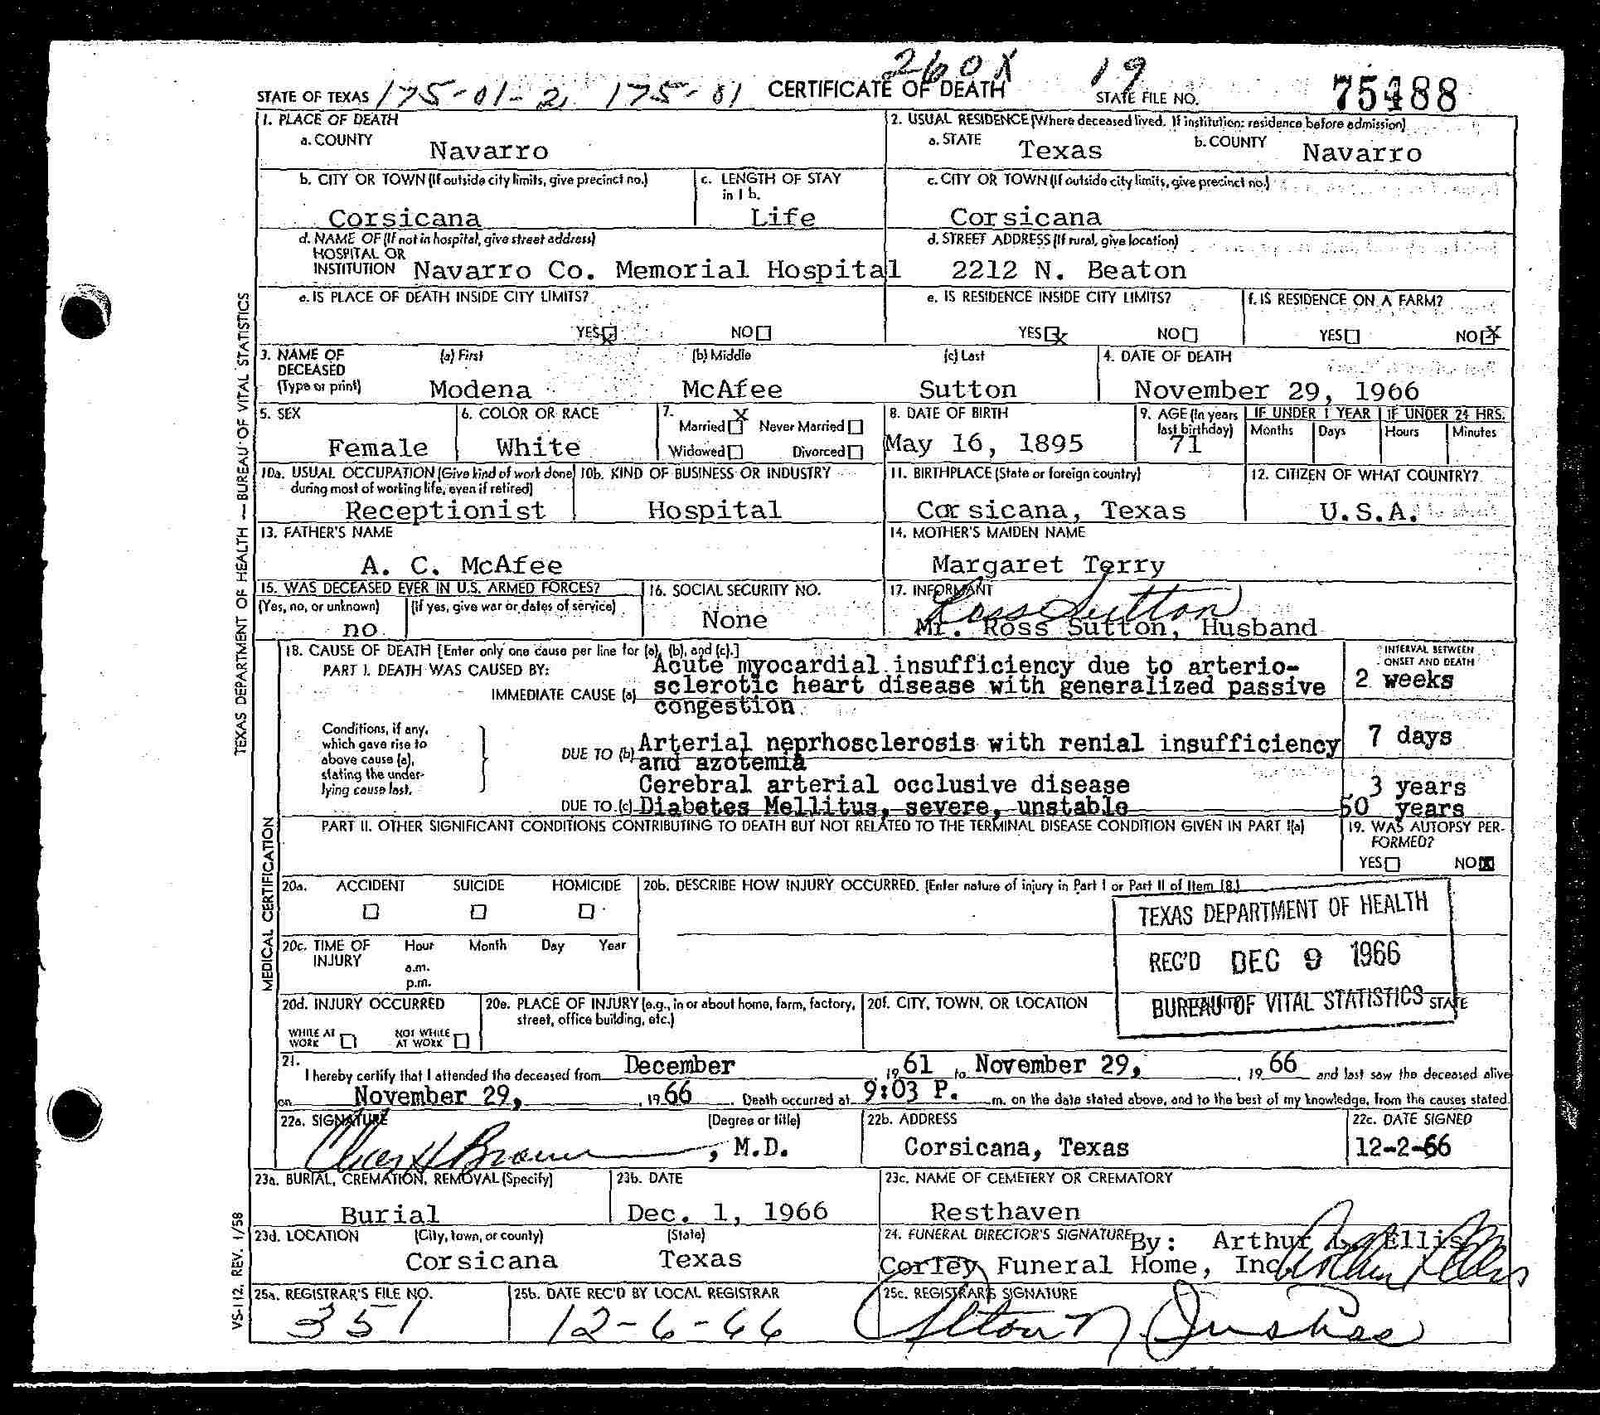 260X 19
STATE OF TEXAS 175-01-2, 175-01 CERTIFICATE OF DEATH STATE FILE NO. 75488
1. PLACE OF DEATH
a. COUNTY Navarro
2. USUAL RESIDENCE (Where deceased lived. If institution: residence before admission)
a. STATE Texas b. COUNTY Navarro
b. CITY OR TOWN (If outside city limits, give precinct no.) Corsicana
c. LENGTH OF STAY in 1 b. Life
c. CITY OR TOWN (If outside city limits, give precinct no.) Corsicana
d. NAME OF (If not in hospital, give street address)
HOSPITAL OR
INSTITUTION Navarro Co. Memorial Hospital
d. STREET ADDRESS (If rural, give location)
2212 N. Beaton
e. IS PLACE OF DEATH INSIDE CITY LIMITS?
YES X NO
e. IS RESIDENCE INSIDE CITY LIMITS?
YES X NO
f. IS RESIDENCE ON A FARM?
YES NO X
3. NAME OF DECEASED (Type or print)
(a) First (b) Middle (c) Last
Modena McAfee Sutton
4. DATE OF DEATH
November 29, 1966
5. SEX
Female
6. COLOR OR RACE
White
7. X
Married Never Married
Widowed Divorced
8. DATE OF BIRTH
May 16, 1895
9. AGE (In years last birthday)
71
IF UNDER 1 YEAR IF UNDER 24 HRS.
Months Days Hours Minutes
10a. USUAL OCCUPATION (Give kind of work done during most of working life, even if retired)
Receptionist
10b. KIND OF BUSINESS OR INDUSTRY
Hospital
11. BIRTHPLACE (State or foreign country)
Corsicana, Texas
12. CITIZEN OF WHAT COUNTRY?
U.S.A.
13. FATHER'S NAME
A. C. McAfee
14. MOTHER'S MAIDEN NAME
Margaret Terry
15. WAS DECEASED EVER IN U.S. ARMED FORCES?
(Yes, no, or unknown) (If yes, give war or dates of service)
no
16. SOCIAL SECURITY NO.
None
17. INFORMANT
Ross Sutton
Mr. Ross Sutton, Husband
18. CAUSE OF DEATH [Enter only one cause per line for (a), (b), and (c).]
INTERVAL BETWEEN ONSET AND DEATH
PART I. DEATH WAS CAUSED BY:
IMMEDIATE CAUSE (a) Acute myocardial insufficiency due to arterio-
sclerotic heart disease with generalized passive 2 weeks
congestion
Conditions, if any, which gave rise to above cause (a), stating the under-lying cause last.
DUE TO (b) Arterial neprhosclerosis with renial insufficiency 7 days
and azotemia
Cerebral arterial occlusive disease 3 years
DUE TO (c) Diabetes Mellitus, severe, unstable 50 years
PART II. OTHER SIGNIFICANT CONDITIONS CONTRIBUTING TO DEATH BUT NOT RELATED TO THE TERMINAL DISEASE CONDITION GIVEN IN PART I(a)
19. WAS AUTOPSY PER-FORMED?
YES NO X
20a. ACCIDENT SUICIDE HOMICIDE
20b. DESCRIBE HOW INJURY OCCURRED. (Enter nature of injury in Part I or Part II of Item 18.)
20c. TIME OF INJURY Hour Month Day Year
a.m.
p.m.
TEXAS DEPARTMENT OF HEALTH
REC'D DEC 9 1966
BUREAU OF VITAL STATISTICS
20d. INJURY OCCURRED
WHILE AT WORK NOT WHILE AT WORK
20e. PLACE OF INJURY (e.g., in or about home, farm, factory, street, office building, etc.)
20f. CITY, TOWN, OR LOCATION STATE
21. I hereby certify that I attended the deceased from December, 1961 to November 29, , 1966 and last saw the deceased alive
on November 29, , 1966. Death occurred at 9:03 P. m. on the date stated above, and to the best of my knowledge, from the causes stated.
22a. SIGNATURE (Degree or title)
Brown, M.D.
22b. ADDRESS
Corsicana, Texas
22c. DATE SIGNED
12-2-66
23a. BURIAL, CREMATION, REMOVAL (Specify)
Burial
23b. DATE
Dec. 1, 1966
23c. NAME OF CEMETERY OR CREMATORY
Resthaven
23d. LOCATION (City, town, or county) (State)
Corsicana Texas
24. FUNERAL DIRECTOR'S SIGNATURE By: Arthur L. Ellis
Corley Funeral Home, Inc
25a. REGISTRAR'S FILE NO.
351
25b. DATE REC'D BY LOCAL REGISTRAR
12-6-66
25c. REGISTRAR'S SIGNATURE
TEXAS DEPARTMENT OF HEALTH — BUREAU OF VITAL STATISTICS
MEDICAL CERTIFICATION
VS-112 REV. 1/58